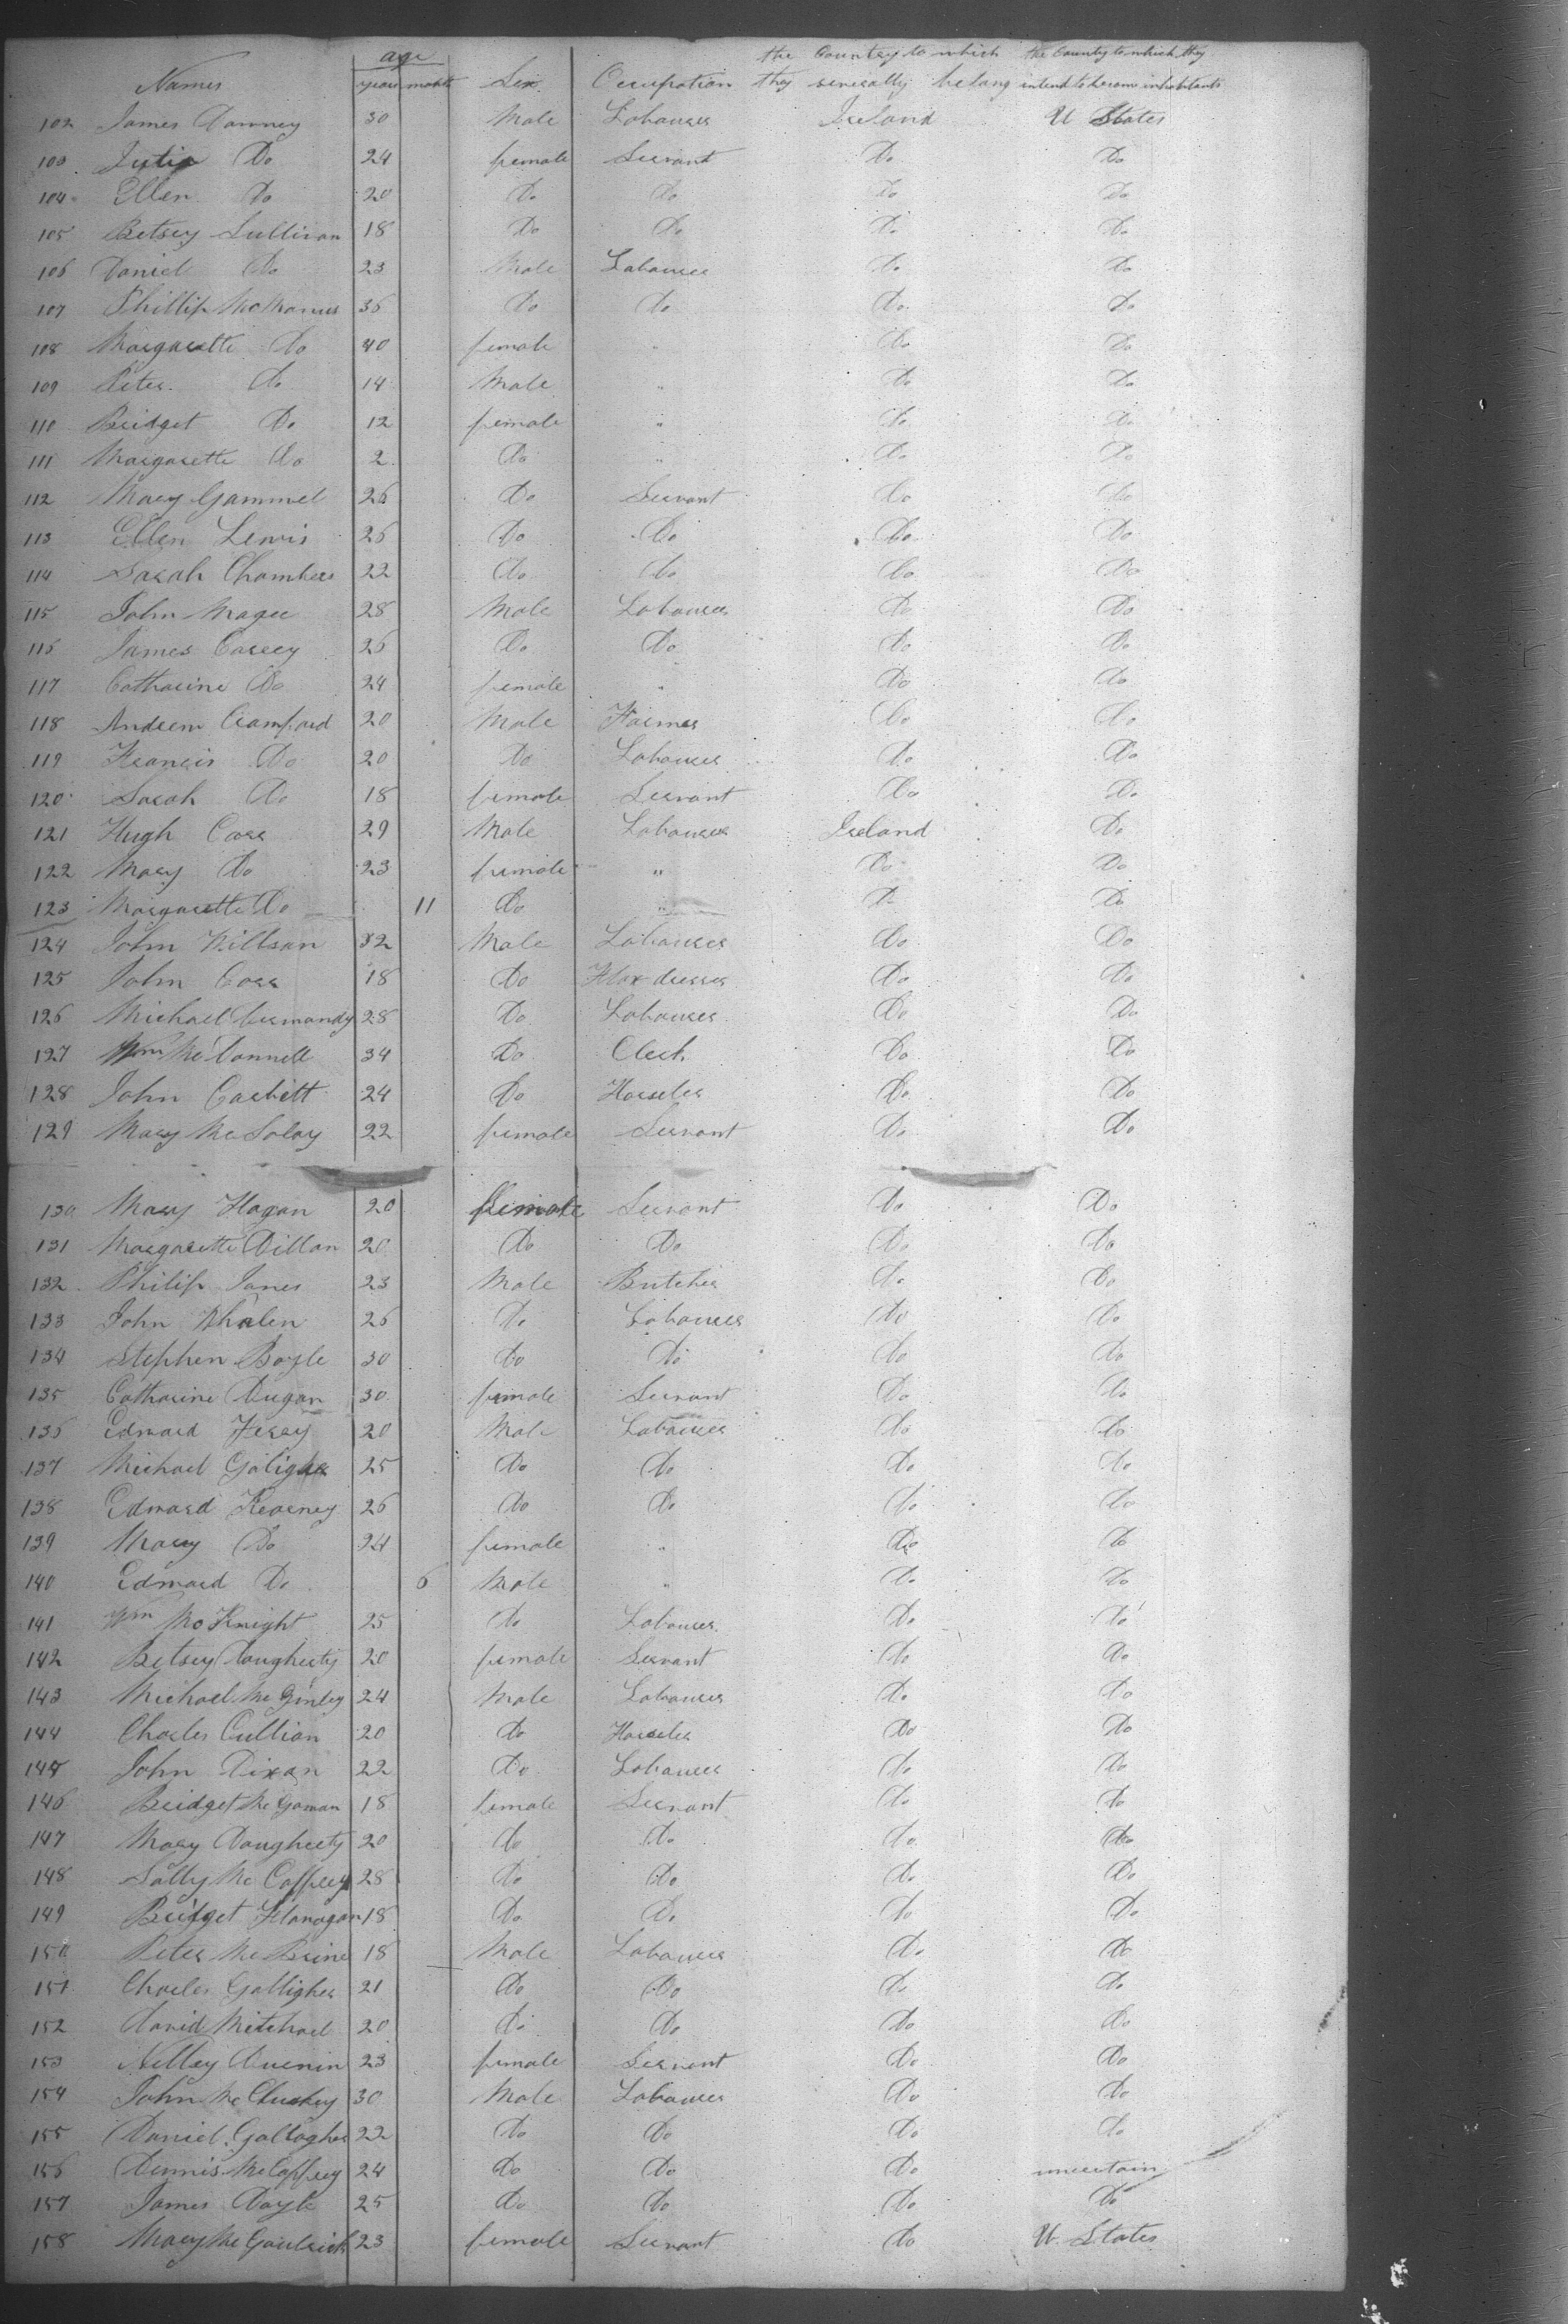 Names age Sex Occupation the Country to which they severally belong the County to which they intend to become inhabitants
years months
102 James Downey 30 Male Labourer Ireland U States
103 Julia Do 24 female Servant Do Do
104 Ellen Do 20 Do Do Do Do
105 Betsey Sullivan 18 Do Do Do Do
106 Daniel Do 23 Male Labourer Do Do
107 Phillip McManus 36 Do Do Do Do
108 Margarette Do 40 female " Do Do
109 Peter Do 14 Male " Do Do
110 Bridget Do 12 female " Do Do
111 Margarette Do 2 Do " Do Do
112 Mary Gammel 26 Do Servant Do Do
113 Ellen Lewis 26 Do Do Do Do
114 Sarah Chambers 22 Do Do Do Do
115 John Magee 28 Male Labourer Do Do
116 James Carrey 26 Do Do Do Do
117 Catharine Do 24 female " Do Do
118 Andrew Crawford 20 Male Farmer Do Do
119 Francis Do 20 Do Labourer Do Do
120 Sarah Do 18 female Servant Do Do
121 Hugh Carr 29 Male Labourer Ireland Do
122 Mary Do 23 female " Do Do
123 Margarette Do 11 Do " Do Do
124 John Willson 32 Male Labourer Do Do
125 John Carr 18 Do Flax dresser Do Do
126 Michael 28 Do Labourer Do Do
127 Wm McConnell 34 Do Clerk Do Do
128 John Corbett 24 Do Horseler Do Do
129 Mary Mc 22 female Servant Do Do
130 Mary Hagan 20 female Servant Do Do
131 Margarette Dillon 20 Do Do Do Do
132 Philip Jones 23 Male Butcher Do Do
133 John Whalen 26 Do Labourer Do Do
134 Stephen Boyle 30 Do Do Do Do
135 Catharine Dugan 30 female Servant Do Do
136 Edward 20 Male Labourer Do Do
137 Michael Galigher 25 Do Do Do Do
138 Edward Kearney 26 Do Do Do Do
139 Mary Do 24 female " Do Do
140 Edward Do 6 Male " Do Do
141 Wm McKnight 25 Do Labourer Do Do
142 Betsey Dougherty 20 female Servant Do Do
143 Michael McGinley 24 Male Labourer Do Do
144 Charles Cullian 20 Do Horseler Do Do
145 John Dixon 22 Do Labourer Do Do
146 Bridget McGowan 18 female Servant Do Do
147 Mary Dougherty 20 Do Do Do Do
148 Sally McCaffrey 28 Do Do Do Do
149 Bridget Flanagan 18 Do Do Do Do
150 Peter McBrine 18 Male Labourer Do Do
151 Charles Galligher 21 Do Do Do Do
152 David Mitchael 20 Do Do Do Do
153 Nelley 23 female Servant Do Do
154 John McCluskey 30 Male Labourer Do Do
155 Daniel Gallagher 22 Do Do Do Do
156 Dennis McCaffrey 24 Do Do Do uncertain
157 James Doyle 25 Do Do Do Do
158 Mary 23 female Servant Do U States